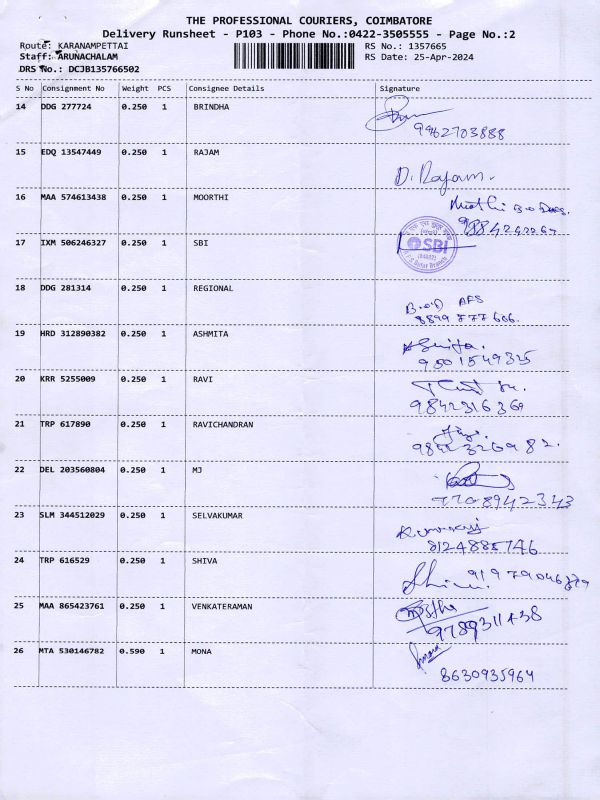 THE PROFESSIONAL COURIERS, COIMBATORE
Delivery Runsheet - P103 - Phone No.:0422-3505555 - Page No.:2
Route: KARANAMPETTAI RS No.: 1357665
Staff: ARUNACHALAM RS Date: 25-Apr-2024
DRS No.: DCJB135766502
S No Consignment No Weight PCS Consignee Details Signature
14 DDG 277724 0.250 1 BRINDHA
9962703888
15 EDQ 13547449 0.250 1 RAJAM
D. Rajam.
16 MAA 574613438 0.250 1 MOORTHI
17 IXM 506246327 0.250 1 SBI
SBI
18 DDG 281314 0.250 1 REGIONAL
B.O.D AFS
8899 777 606.
19 HRD 312890382 0.250 1 ASHMITA
9501549325
20 KRR 5255009 0.250 1 RAVI
9842316369
21 TRP 617890 0.250 1 RAVICHANDRAN
22 DEL 203560804 0.250 1 MJ
7708942343
23 SLM 344512029 0.250 1 SELVAKUMAR
8124885746
24 TRP 616529 0.250 1 SHIVA
25 MAA 865423761 0.250 1 VENKATERAMAN
9789311438
26 MTA 530146782 0.590 1 MONA
8630935964